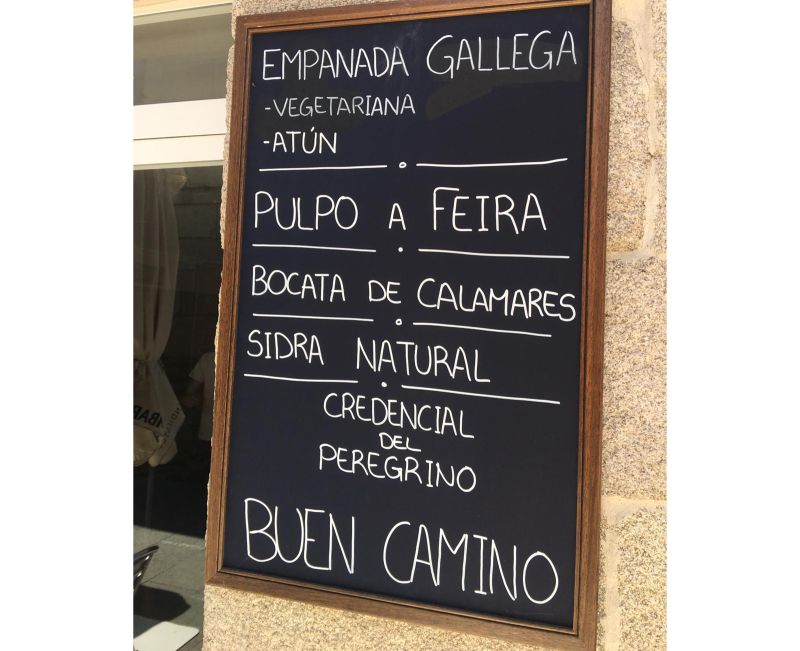 EMPANADA GALLEGA
-VEGETARIANA
-ATÚN
PULPO A FEIRA
BOCATA DE CALAMARES
SIDRA NATURAL
CREDENCIAL
DEL
PEREGRINO
BUEN CAMINO